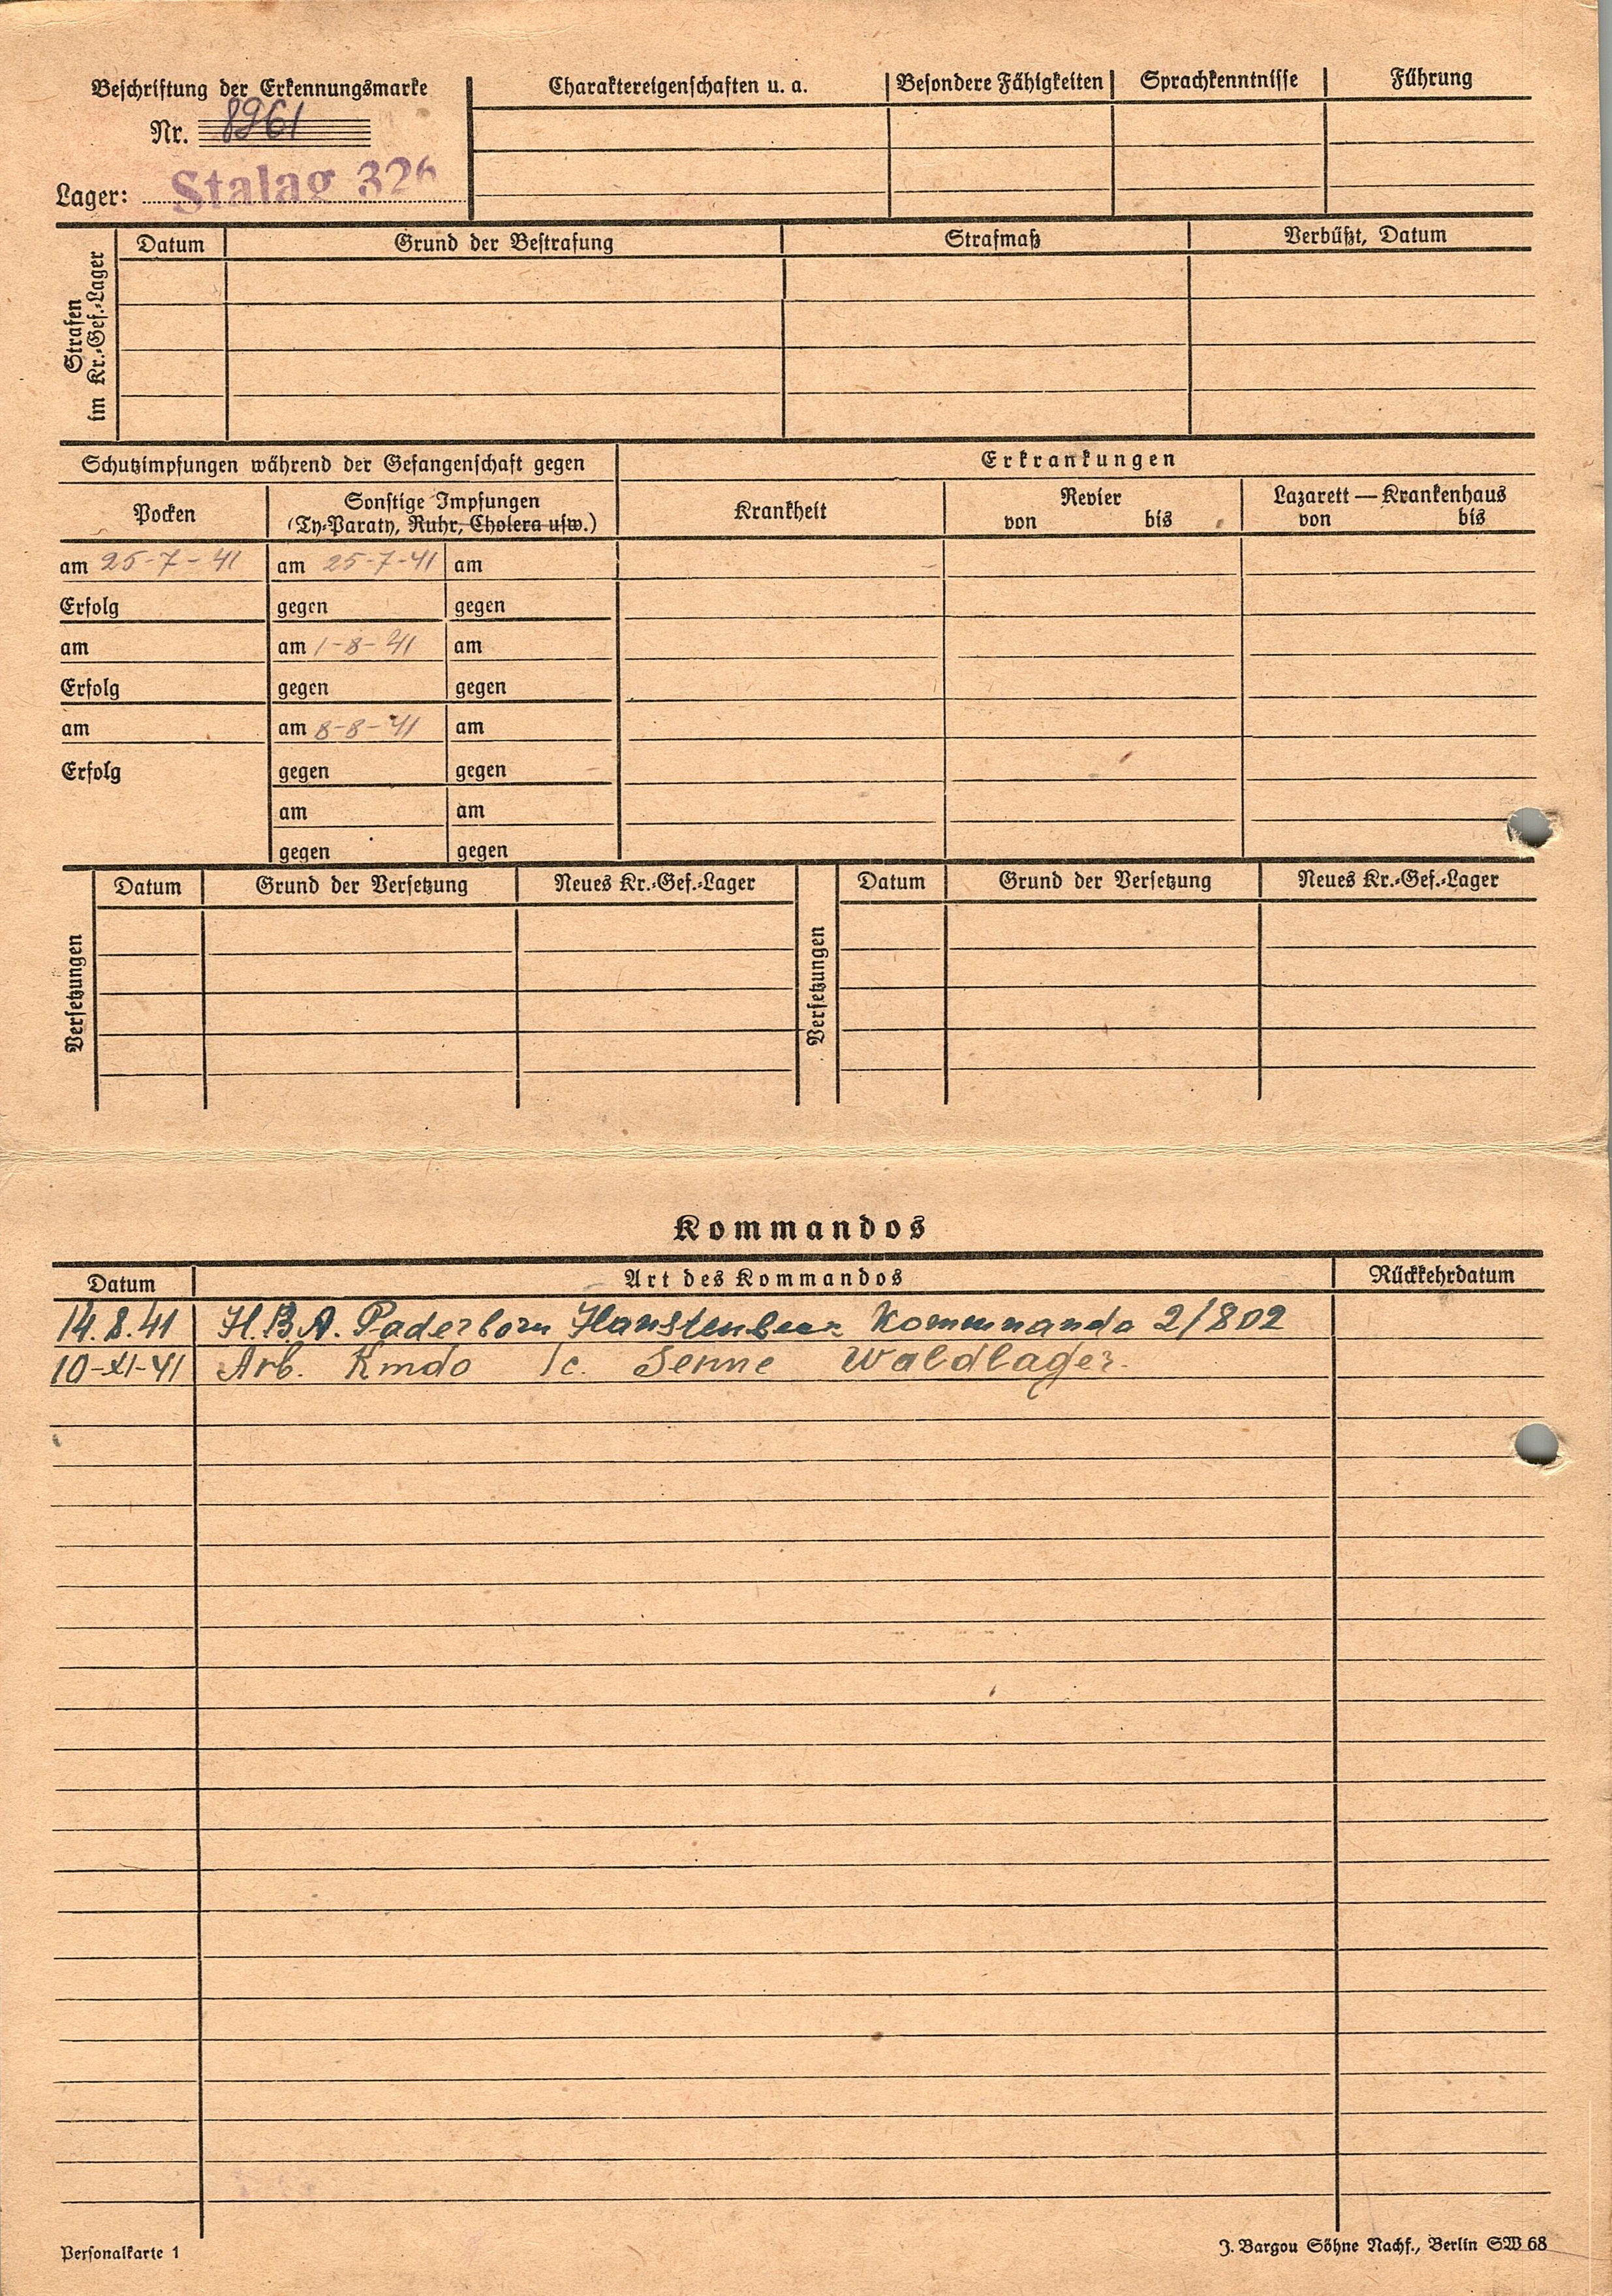 Beschriftung der Erkennungsmarke
Nr. 8961
Lager: Stalag 326
Charaktereigenschaften u. a. Besondere Fähigkeiten Sprachkenntnisse Führung
Strafen im Kr.-Gef.-Lager
Datum Grund der Bestrafung Strafmaß Verbüßt, Datum
Schutzimpfungen während der Gefangenschaft gegen Erkrankungen
Pocken Sonstige Impfungen Krankheit Revier Lazarett — Krankenhaus
(Ty-Paraty, Ruhr, Cholera usw.) von bis von bis
am 25-7-41 am 25-7-41 am
Erfolg gegen gegen
am am 1-8-41 am
Erfolg gegen gegen
am am 8-8-41 am
Erfolg gegen gegen
am am
gegen gegen
Versetzungen Datum Grund der Versetzung Neues Kr.-Gef.-Lager Versetzungen Datum Grund der Versetzung Neues Kr.-Gef.-Lager
Kommandos
Datum Art des Kommandos Rückkehrdatum
14.8.41 H.B.A. Paderborn Kommando 2/802
10-XI-41 Arb. Kmdo Senne Waldlager.
Personalkarte 1 J. Bargou Söhne Nachf., Berlin SW 68